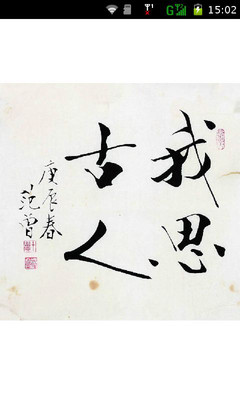 15:02
我思
古人
庚辰春
范曾